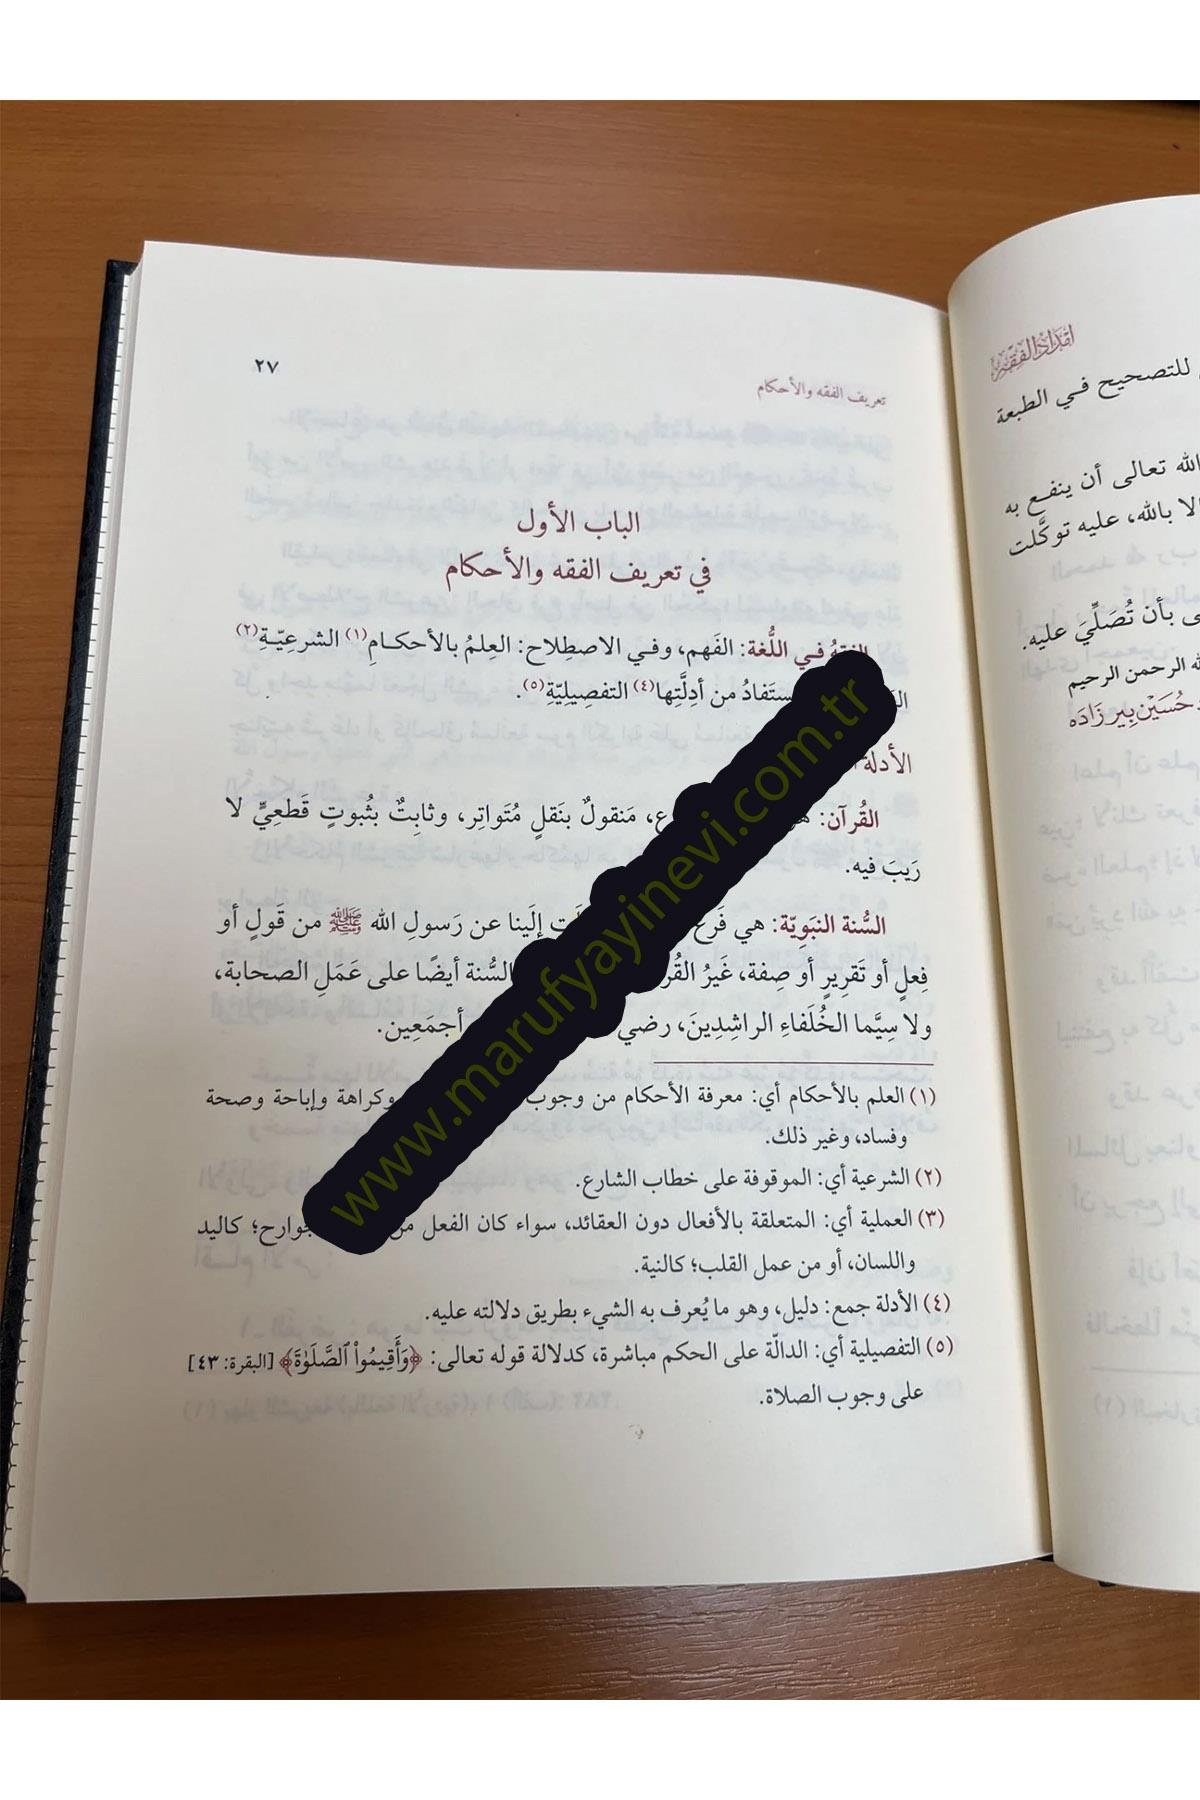 تعريف الفقه والأحكام
٢٧
الباب الأول
في تعريف الفقه والأحكام
الفقهُ فـي اللُّغة: الفَهم، وفـي الاصطِلاح: العِلمُ بالأحكـامِ(١) الشرعِيّـةِ(٢)
من أدِلَّتِها(٤) التفصِيلِيّةِ(٥).
الأدلة
القُرآن: مَنقولٌ بنَقلٍ مُتَواتِر، وثابِتٌ بثُبوتٍ قَطعِيٍّ لا
رَيبَ فيه.
السُّنة النبَوِيّة: هي إلَينا عن رَسولِ الله ﷺ من قَولٍ أو
فِعلٍ أو تَقرِيرٍ أو صِفة، غَيرُ السُّنة أيضًا على عَمَلِ الصحابة،
ولا سِيَّما الخُلَفاءِ الراشِدِينَ، رضي أجمَعِين.
(١) العلم بالأحكام أي: معرفة الأحكام من وجوب وكراهة وإباحة وصحة
وفساد، وغير ذلك.
(٢) الشرعية أي: الموقوفة على خطاب الشارع.
(٣) العملية أي: المتعلقة بالأفعال دون العقائد، سواء كان الفعل كاليد
واللسان، أو من عمل القلب؛ كالنية.
(٤) الأدلة جمع: دليل، وهو ما يُعرف به الشيء بطريق دلالته عليه.
(٥) التفصيلية أي: الدالّة على الحكم مباشرة، كدلالة قوله تعالى: ﴿وَأَقِيمُوا۟ ٱلصَّلَوٰةَ﴾ [البقرة: ٤٣]
على وجوب الصلاة.
www.marufyayinevi.com.tr
للتصحيح فـي الطبعة
الله تعالى أن ينفـع به
بالله، عليه توكَّلت
بأن تُصَلِّيَ عليه.
الرحمن الرحيم